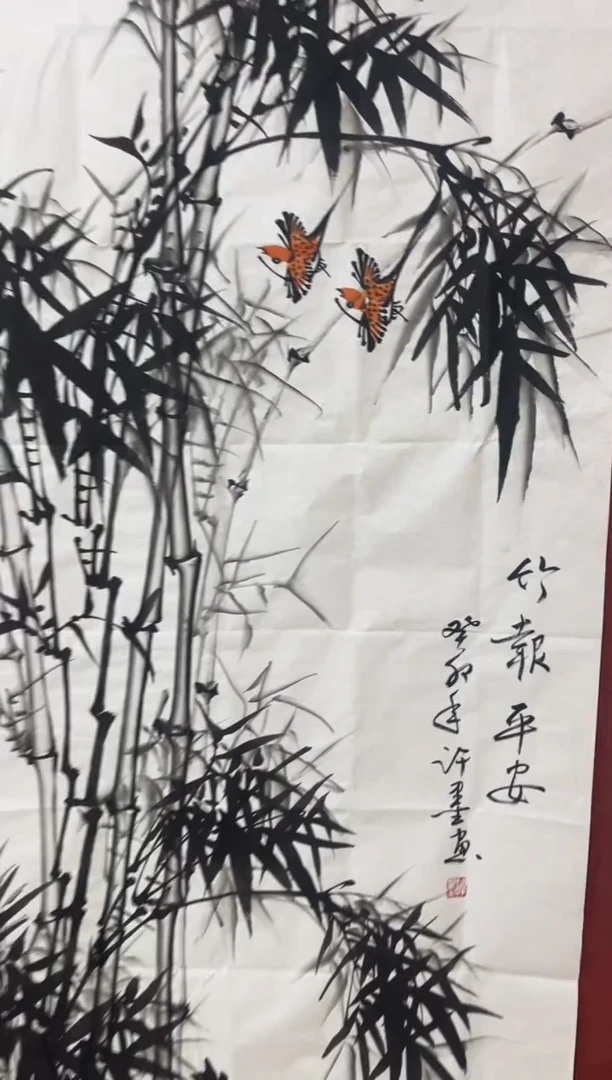 竹報平安
癸卯年許墨画